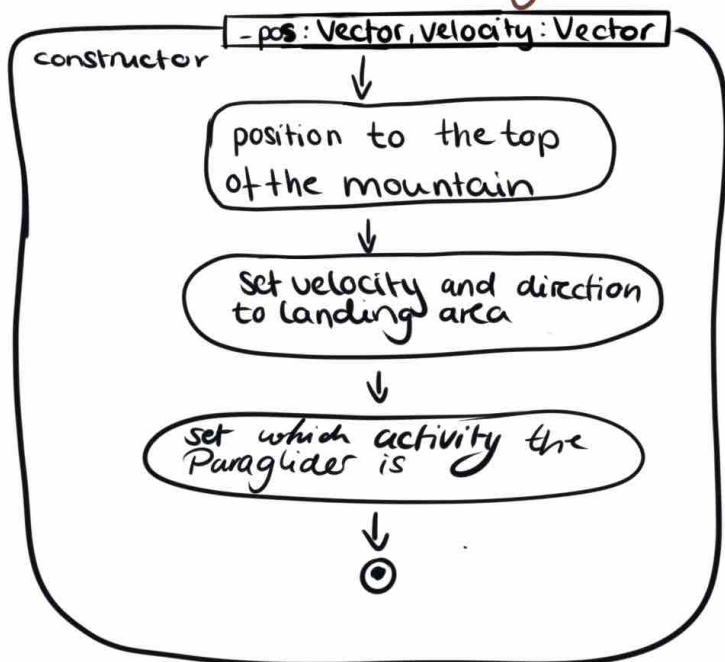 - pos: Vector, velocity: Vector
constructor
position to the top
of the mountain
set velocity and direction
to landing area
set which activity the
Paraglider is